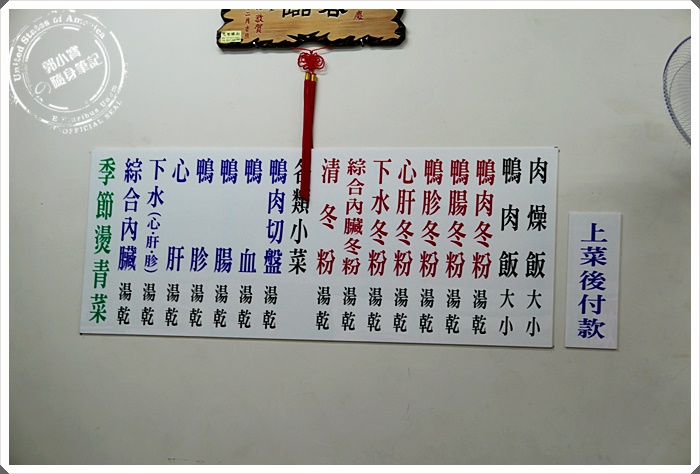 肉燥飯 大 小
鴨肉飯 大 小
鴨肉冬粉 湯 乾
鴨腸冬粉 湯 乾
鴨胗冬粉 湯 乾
心肝冬粉 湯 乾
下水冬粉 湯 乾
綜合內臟冬粉 湯 乾
清冬粉 湯 乾
各類小菜
鴨肉切盤 湯 乾
鴨血 湯 乾
鴨腸 湯 乾
鴨胗 湯 乾
心肝 湯 乾
下水(心·肝·胗) 湯 乾
綜合內臟 湯 乾
季節燙青菜
上菜後付款
United States of America
郭小寶
の隨身筆記
E Pluribus Unum
OFFICIAL SEAL